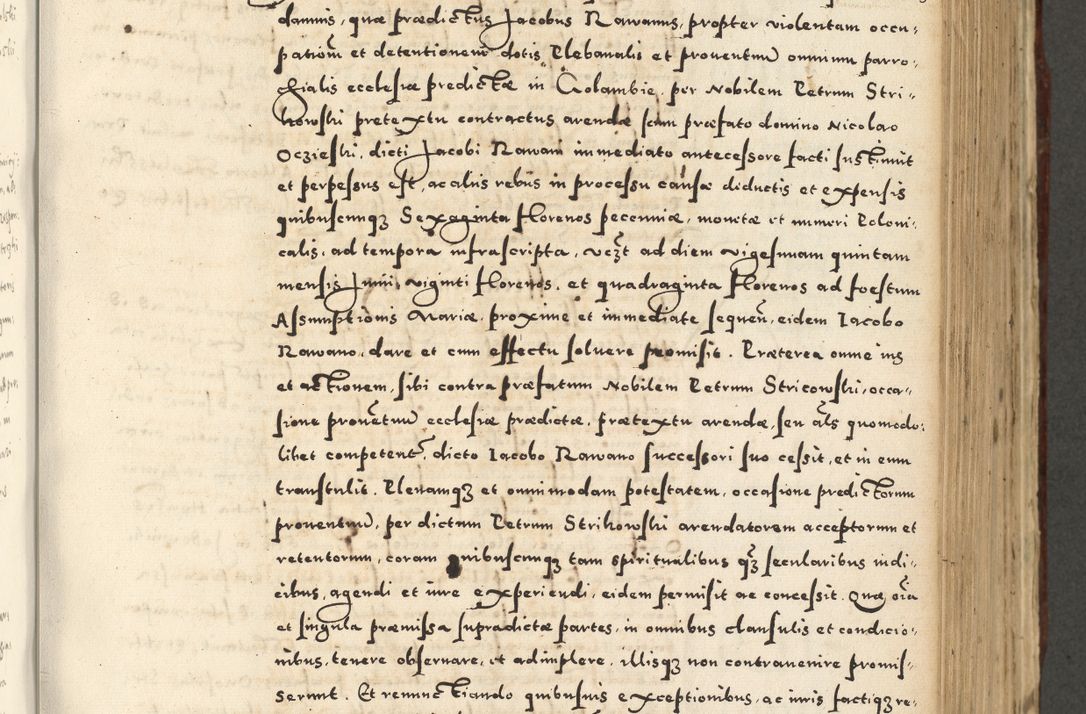 damnis, quæ prædictus Jacobus Rawanus, propter violentam occu-
pationem et detentionem dotis Plebanalis et prouentuum omnium parro-
chialis ecclesiæ predictæ in Golambie, per Nobilem Petrum Stri-
kowski pretextu contractus arendæ seu præfato domino Nicolao
Oczieski, dicti Jacobi Rawani immediato antecessore facti sustinuit
et perpessus est, ac aliis rebus in processu causæ deductis et expensis
quibuscunqꝫ Sexaginta florenos pecuniæ, monetæ et numeri Poloni-
calis, ad tempora infrascripta, vczt ad diem vigesimam quintam
mensis Junii, viginti florenos, et quadraginta florenos ad foestum
Assumptionis Mariæ, proxime et immediate sequen, eidem Iacobo
Rawano, dare et cum effectu soluere promisit. Præterea omne ius
et actionem, sibi contra præfatum Nobilem Petrum Stricowski, occa-
sione prouentuum ecclesiæ prædictæ, prætextu arendæ, seu als quomodo-
libet competent, dicto Iacobo Rawano successori suo cessit, et in eum
transtulit. Plenamqꝫ et omnimodam potestatem, occasione predictorum
prouentuum, per dictum Petrum Strikowski arendatorem acceptorum et
retentorum, coram quibuscunqꝫ tam spiritualibus qꝫ secularibus iudi-
cibus, agendi et iure experiendi, eidem permisit ac concessit. Quæ oia
et singula præmissa supradictæ partes, in omnibus clausulis et condicio-
nibus, tenere obseruare, et adimplere, illisqꝫ non contrauenire promis-
serunt. Et renunctiando quibusuis exceptionibus, ac iuris factiqꝫ re-